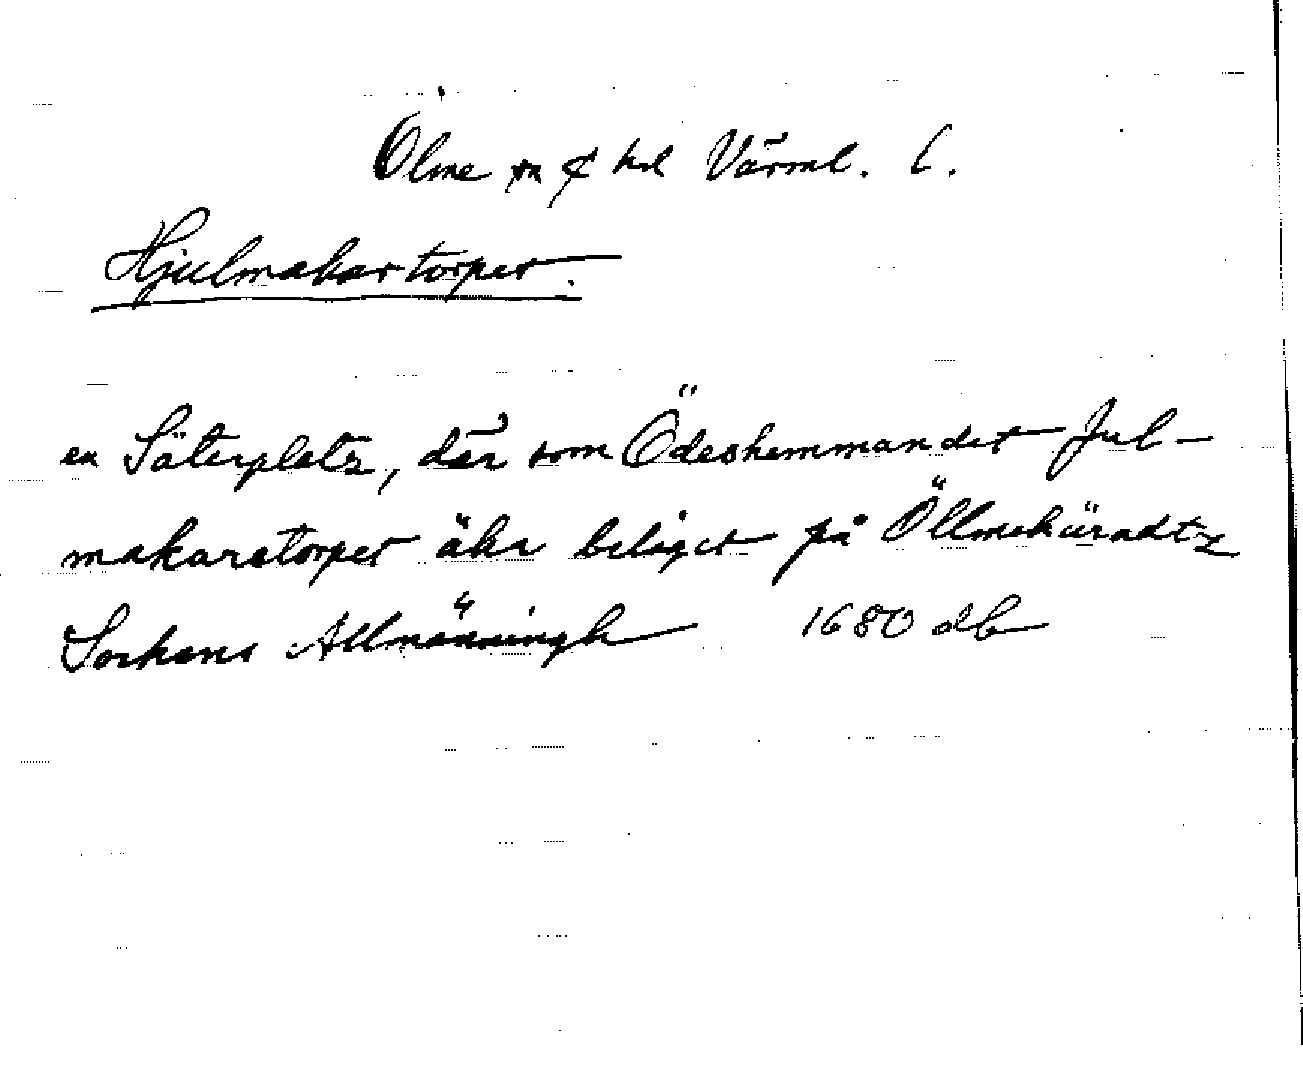 Ölme sn & hd Värml. l.
Hjulmakartorpet.
en Säterplatz, där som Ödeshemmandet Jul-
makaretorpet ähr beläget på Öllmehäradtz
Sockens Allmänningh 1680 db